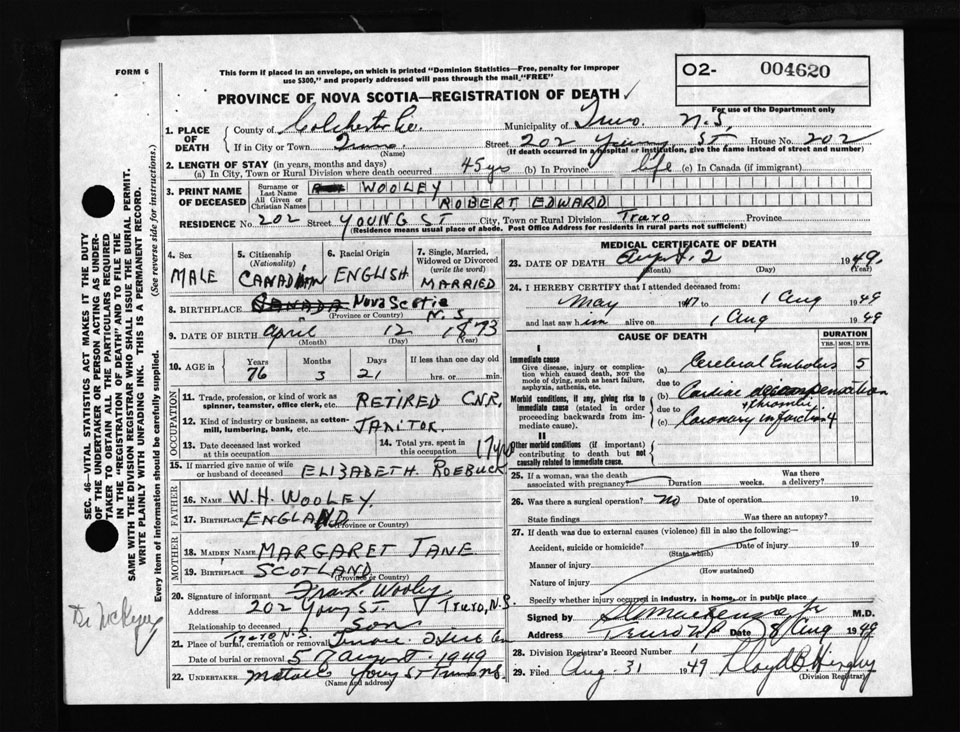 FORM 6
This form if placed in an envelope, on which is printed "Dominion Statistics—Free, penalty for improper
use $300," and properly addressed will pass through the mail "FREE"
O2- 004620
For use of the Department only
PROVINCE OF NOVA SCOTIA—REGISTRATION OF DEATH
1. PLACE OF DEATH
County of Colchester Co. Municipality of Truro N.S.
If in City or Town Truro (Name) Street 202 Young ST. House No. 202
(If death occurred in a hospital or institution, give the name instead of street and number)
2. LENGTH OF STAY (in years, months and days)
(a) In City, Town or Rural Division where death occurred 45 yrs (b) In Province life (c) In Canada (if immigrant)
3. PRINT NAME OF DECEASED
Surname or Last Name WOOLEY
All Given or Christian Names ROBERT EDWARD
RESIDENCE No. 202 Street YOUNG ST City, Town or Rural Division Truro Province
(Residence means usual place of abode. Post Office Address for residents in rural parts not sufficient)
4. Sex
MALE
5. Citizenship (Nationality)
CANADIAN
6. Racial Origin
ENGLISH
7. Single, Married, Widowed or Divorced (write the word)
MARRIED
8. BIRTHPLACE CANADA Nova Scotia N.S.
(Province or Country)
9. DATE OF BIRTH April 12 1873
(Month) (Day) (Year)
10. AGE in
Years Months Days If less than one day old
76 3 21 hrs. or min.
OCCUPATION
11. Trade, profession, or kind of work as spinner, teamster, office clerk, etc. RETIRED C.N.R.
12. Kind of industry or business, as cotton-mill, lumbering, bank, etc. JANITOR
13. Date deceased last worked at this occupation
14. Total yrs. spent in this occupation 17 yrs
15. If married give name of wife or husband of deceased ELIZABETH ROEBUCK
FATHER
16. NAME W.H. WOOLEY
17. BIRTHPLACE ENGLAND
(Province or Country)
MOTHER
18. MAIDEN NAME MARGARET JANE
19. BIRTHPLACE SCOTLAND
(Province or Country)
20. Signature of informant Frank Wooley
Address 202 Young ST. Truro, N.S.
Relationship to deceased Son
21. Place of burial, cremation or removal Truro N.S.
Date of burial or removal 5 August 1949
22. UNDERTAKER Young ST Truro NS
(Name and address)
MEDICAL CERTIFICATE OF DEATH
23. DATE OF DEATH 2 1949
(Month) (Day) (Year)
24. I HEREBY CERTIFY that I attended deceased from:
May 1947 to 1 Aug 1949
and last saw him alive on 1 Aug 1949
CAUSE OF DEATH
DURATION
YRS. MOS. DYS.
I
Immediate cause
Give disease, injury or complication which caused death, not the mode of dying, such as heart failure, asphyxia, asthenia, etc.
(a) Cerebral Embolus 5
due to
Morbid conditions, if any, giving rise to immediate cause (stated in order proceeding backwards from immediate cause).
(b) Cardiac decompensation + thrombi
due to
(c) Coronary infarction 4
II
Other morbid conditions (if important) contributing to death but not causally related to immediate cause.
25. If a woman, was the death associated with pregnancy? Duration weeks. Was there a delivery?
26. Was there a surgical operation? no Date of operation 19
State findings Was there an autopsy?
27. If death was due to external causes (violence) fill in also the following:—
Accident, suicide or homicide? Date of injury 19
(State which)
Manner of injury
(How sustained)
Nature of injury
Specify whether injury occurred in industry, in home, or in public place
Signed by M.D.
Address Truro Date 8 Aug 1949
28. Division Registrar's Record Number
29. Filed Aug. 31 1949 Lloyd
(Division Registrar)
SEC. 46—VITAL STATISTICS ACT MAKES IT THE DUTY
OF THE UNDERTAKER OR PERSON ACTING AS UNDER-
TAKER TO OBTAIN ALL THE PARTICULARS REQUIRED
IN THE "REGISTRATION OF DEATH" AND TO FILE THE
SAME WITH THE DIVISION REGISTRAR WHO SHALL ISSUE THE BURIAL PERMIT.
WRITE PLAINLY WITH UNFADING INK. THIS IS A PERMANENT RECORD.
Every item of information should be carefully supplied. (See reverse side for instructions.)